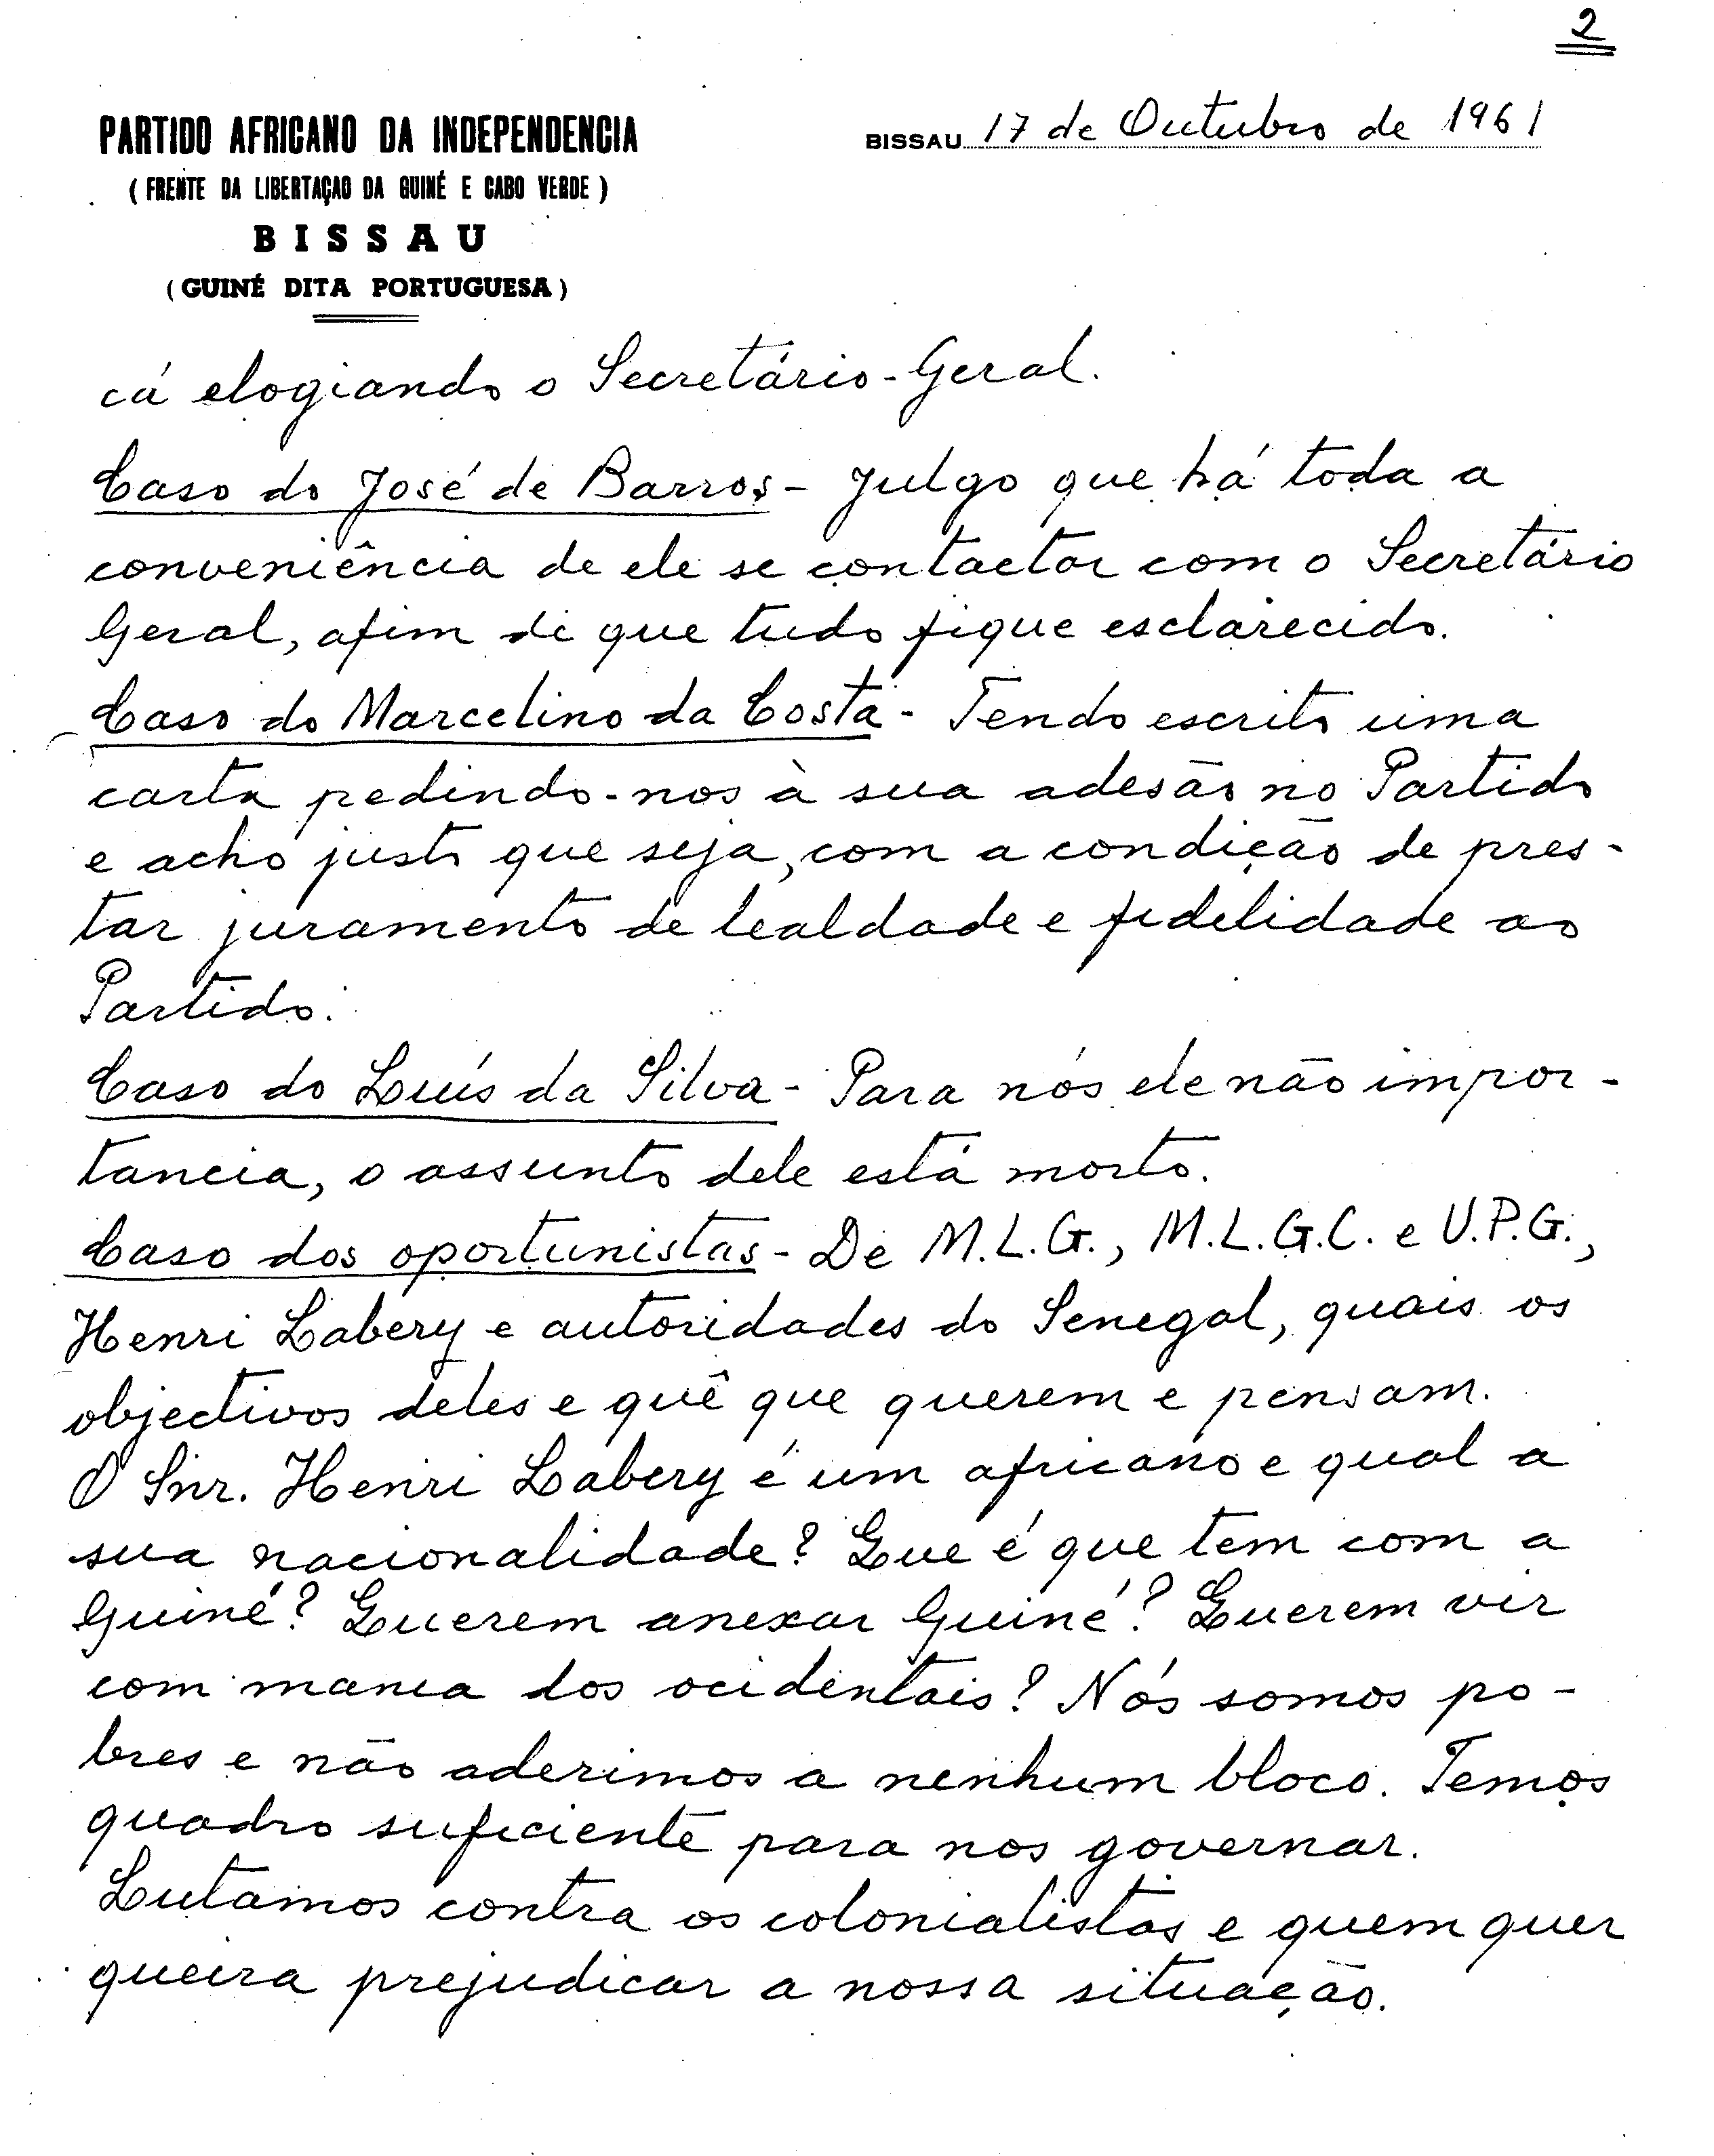 2
PARTIDO AFRICANO DA INDEPENDENCIA
( FRENTE DA LIBERTAÇAO DA GUINÉ E CABO VERDE )
BISSAU
( GUINÉ DITA PORTUGUESA )
BISSAU 17 de Outubro de 1961
cá elogiando o Secretário-Geral.
Caso do José de Barros - Julgo que há toda a
conveniência de ele se contactar com o Secretário
Geral, afim de que tudo fique esclarecido.
Caso do Marcelino da Costa - Tendo escrito uma
carta pedindo-nos à sua adesão no Partido
e acho justo que seja, com a condição de pres-
tar juramento de lealdade e fidelidade ao
Partido.
Caso do Luís da Silva - Para nós ele não impor-
tancia, o assunto dele está morto.
Caso dos oportunistas - De M.L.G., M.L.G.C. e U.P.G.,
Henri Labery e autoridades do Senegal, quais os
objectivos deles e quê que querem e pensam.
O Snr. Henri Labery é um africano e qual a
sua nacionalidade? Que é que tem com a
Guiné? Querem anexar Guiné? Querem vir
com mania dos ocidentais? Nós somos po-
bres e não aderimos a nenhum bloco. Temos
quadro suficiente para nos governar.
Lutamos contra os colonialistas e quem quer
queira prejudicar a nossa situação.